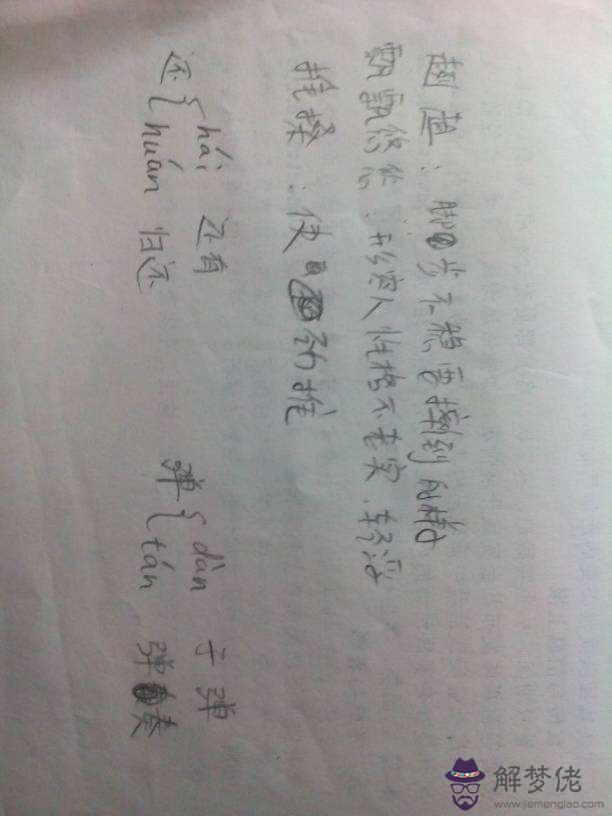 趔趄：脚步不稳要摔倒的样子
飘飘悠悠：形容人性格不老实、轻浮
推搡：使劲推
还{hái 还有
huán 归还
弹{dàn 子弹
tán 弹奏
解梦佬
www.jiemenglao.com